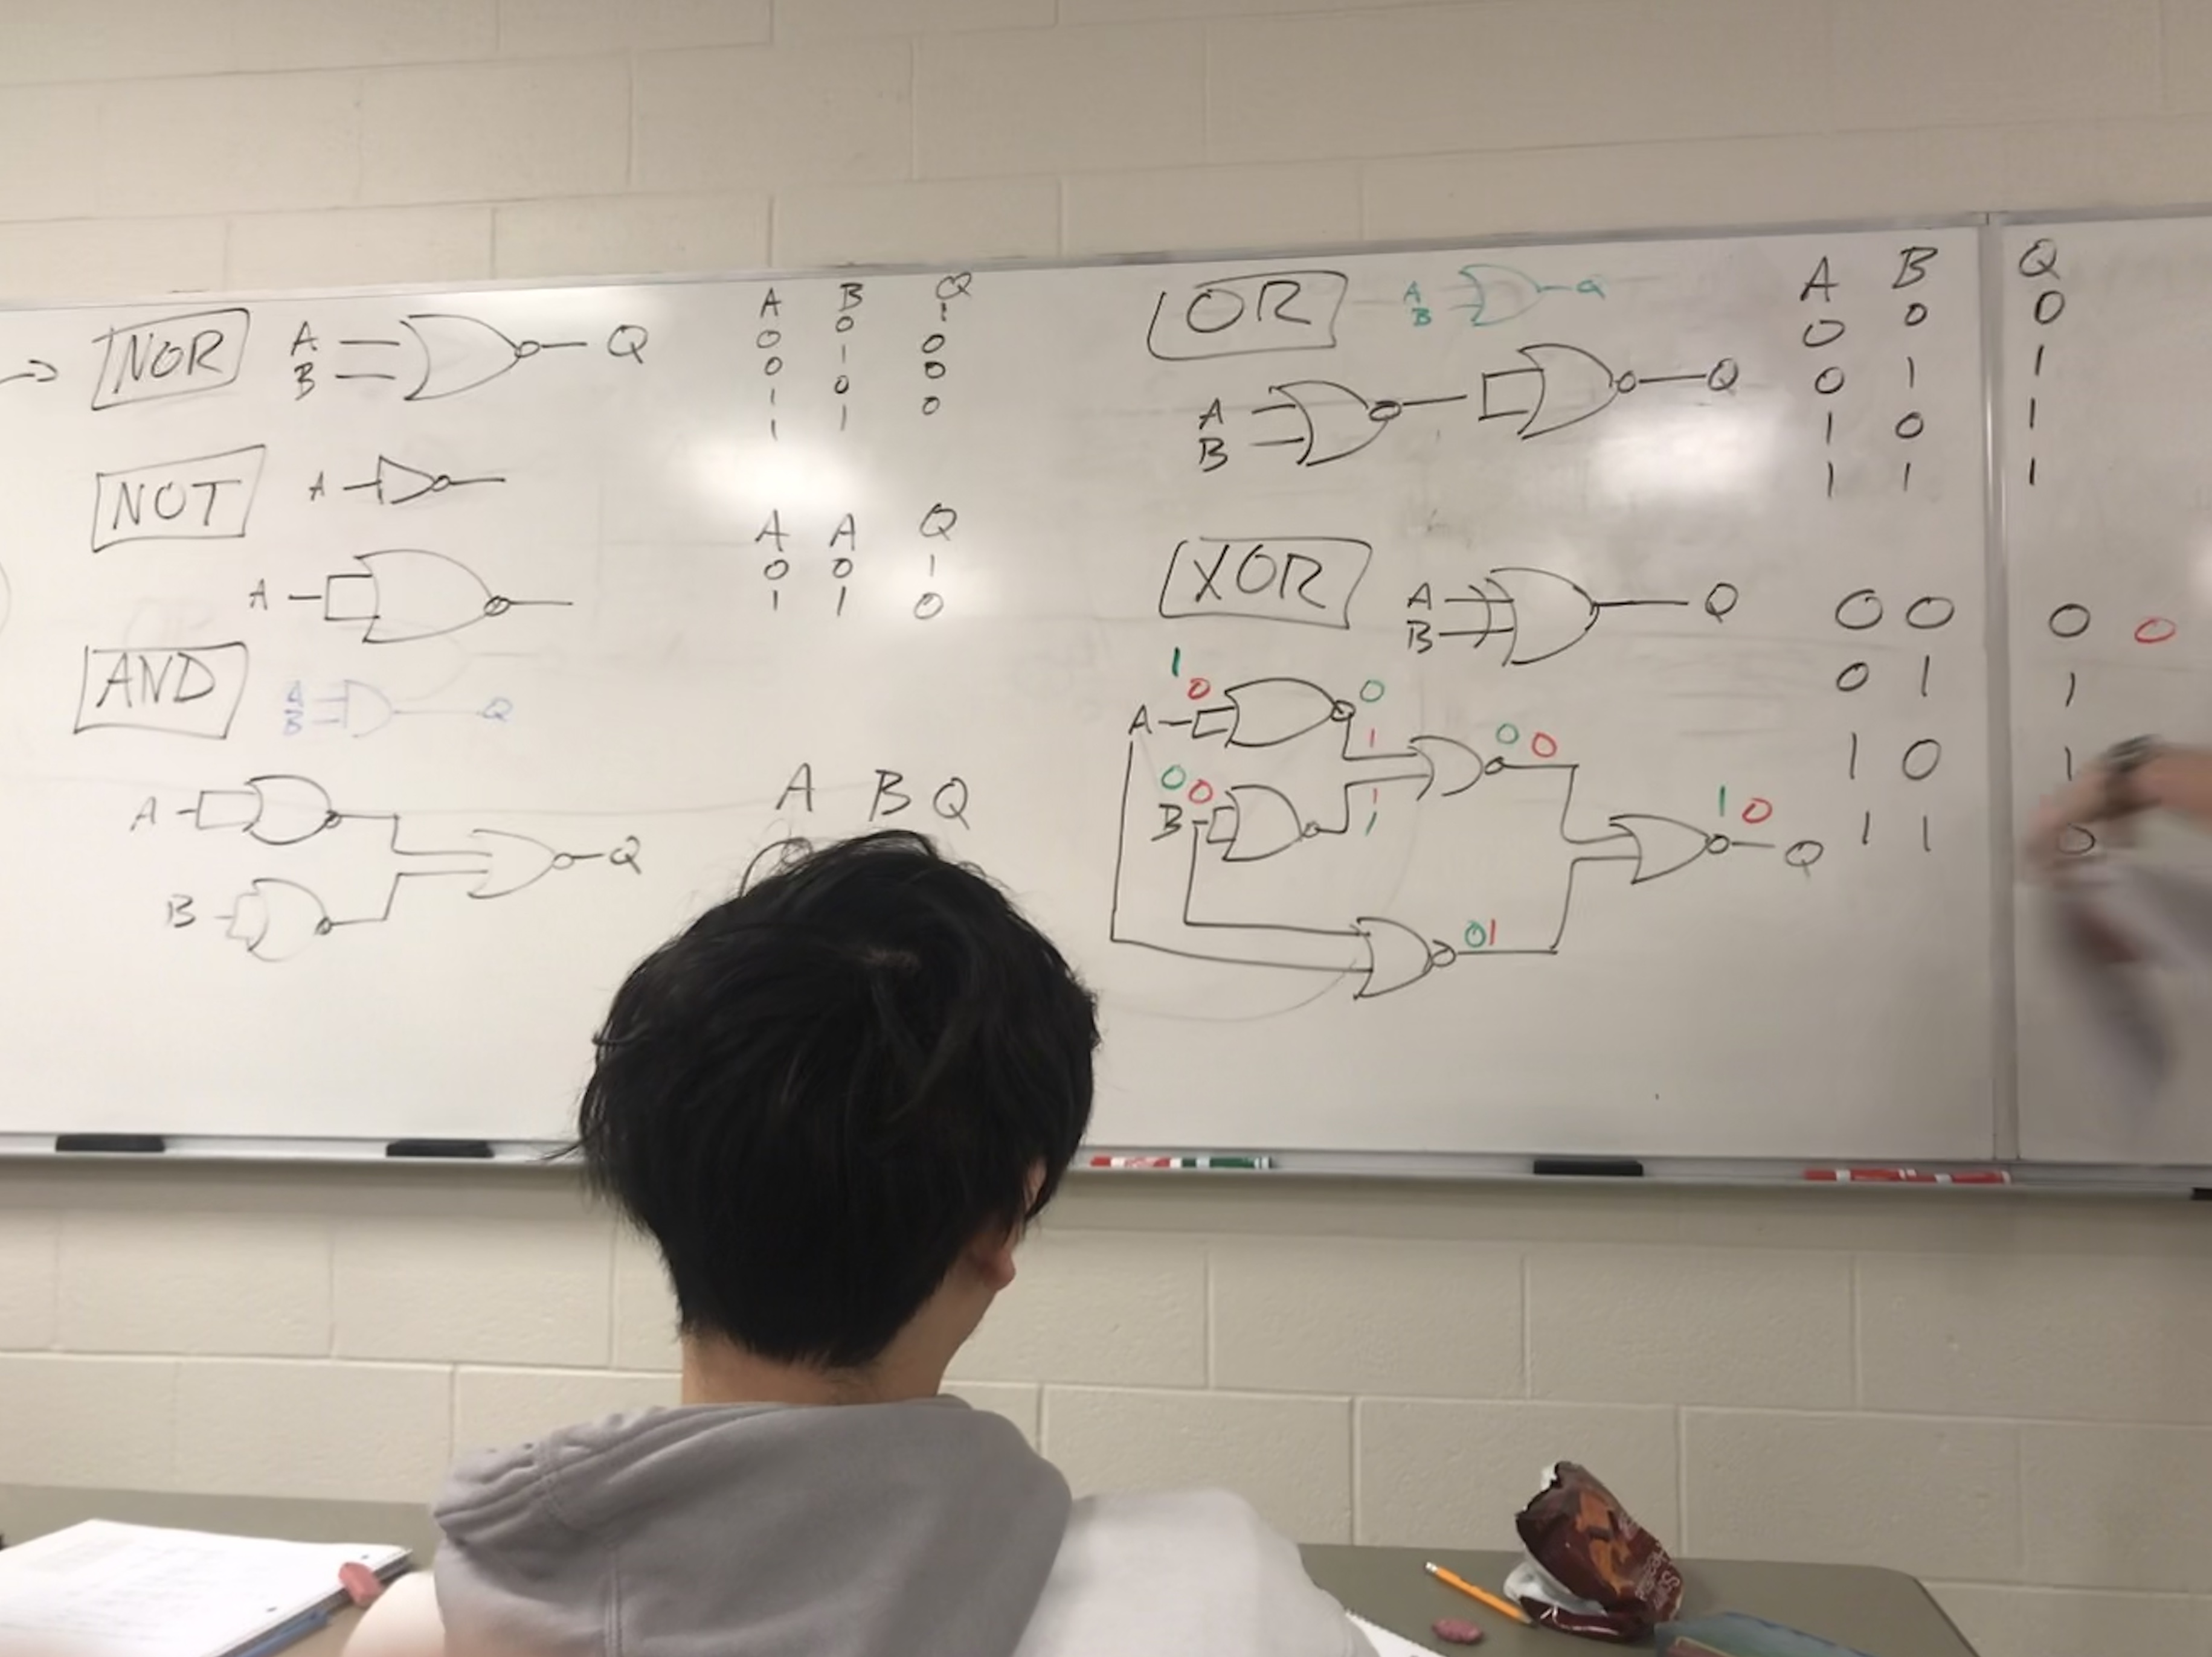 NOR
A
B
Q
A B Q
0 0 1
0 1 0
1 0 0
1 1 0
NOT
A
A
A A Q
0 0 1
1 1 0
AND
A
B
Q
A
B
Q
A B Q
OR
A
B
Q
A
B
Q
A B Q
0 0 0
0 1 1
1 0 1
1 1 1
XOR
A
B
Q
0 0 0 0
0 1 1
1 0 1
1 1 0
1 0
A
0
1
0 0
B
1
1
0 0
0 1
1 0
Q